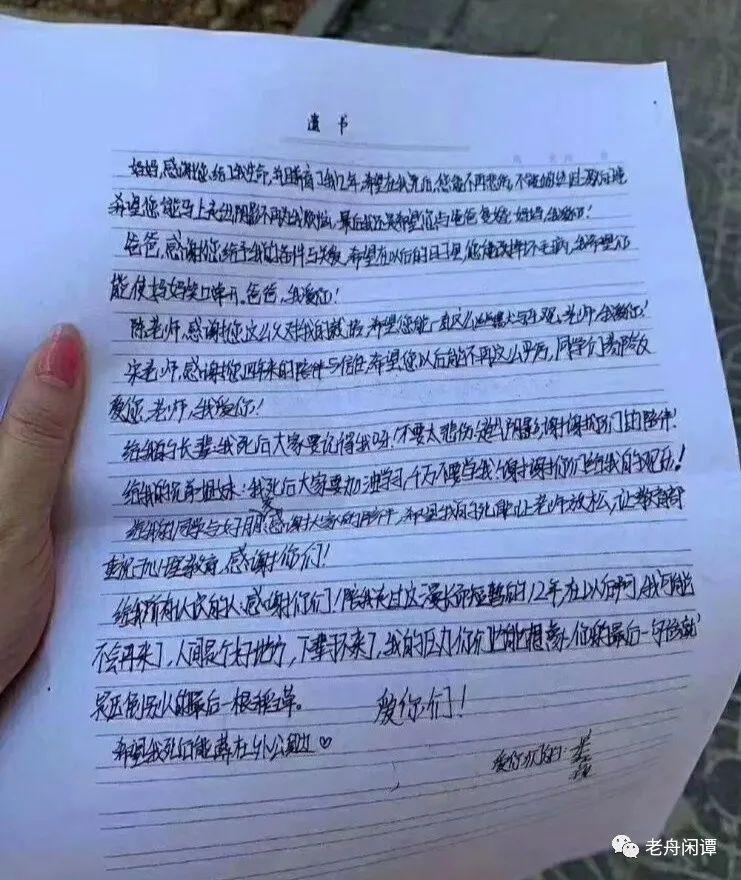 遗书
妈妈,感谢您给了我生命,并哺育了我12年,希望在我死后,您能不再悲伤,不
希望您能马上走出阴影不再为我 最后我还是希望您与爸爸复婚,妈妈,我爱你!
爸爸,感谢您给予我的条件与关爱,希望在以后的日子里,您能改掉坏毛病,我希望您
能使妈妈笑口常开。爸爸,我爱你!
陈老师,感谢您这么久对我的 希望您能一直这么 与 老师,我爱你!
宋老师,感谢您四年来的陪伴与信任,希望您以后能不再这么严厉,同学们都很
爱您,老师,我爱你!
给我的长辈:我死后大家要记得我呀!不要太悲伤 阴影,谢谢 们的陪伴!
给我的兄弟姐妹:我死后大家要加油学习,千万不要学我!谢谢你们给我的 !
给我的同学与好朋友:感谢大家的陪伴,希望我的死能让老师放松,让教育部
重视于心理教育,感谢你们!
给我所有认识的人:感谢你们!陪我走过这漫长而短暂的12年,在这以后啊,我可能
不会再来了,人间是个好地方,下辈子不来了,我的压力你们 能想象,你的最后一句话就
是压倒 的最后一根稻草。 爱你们!
希望我死后能葬在外公 ♡
爱你们的:
老舟闲谭